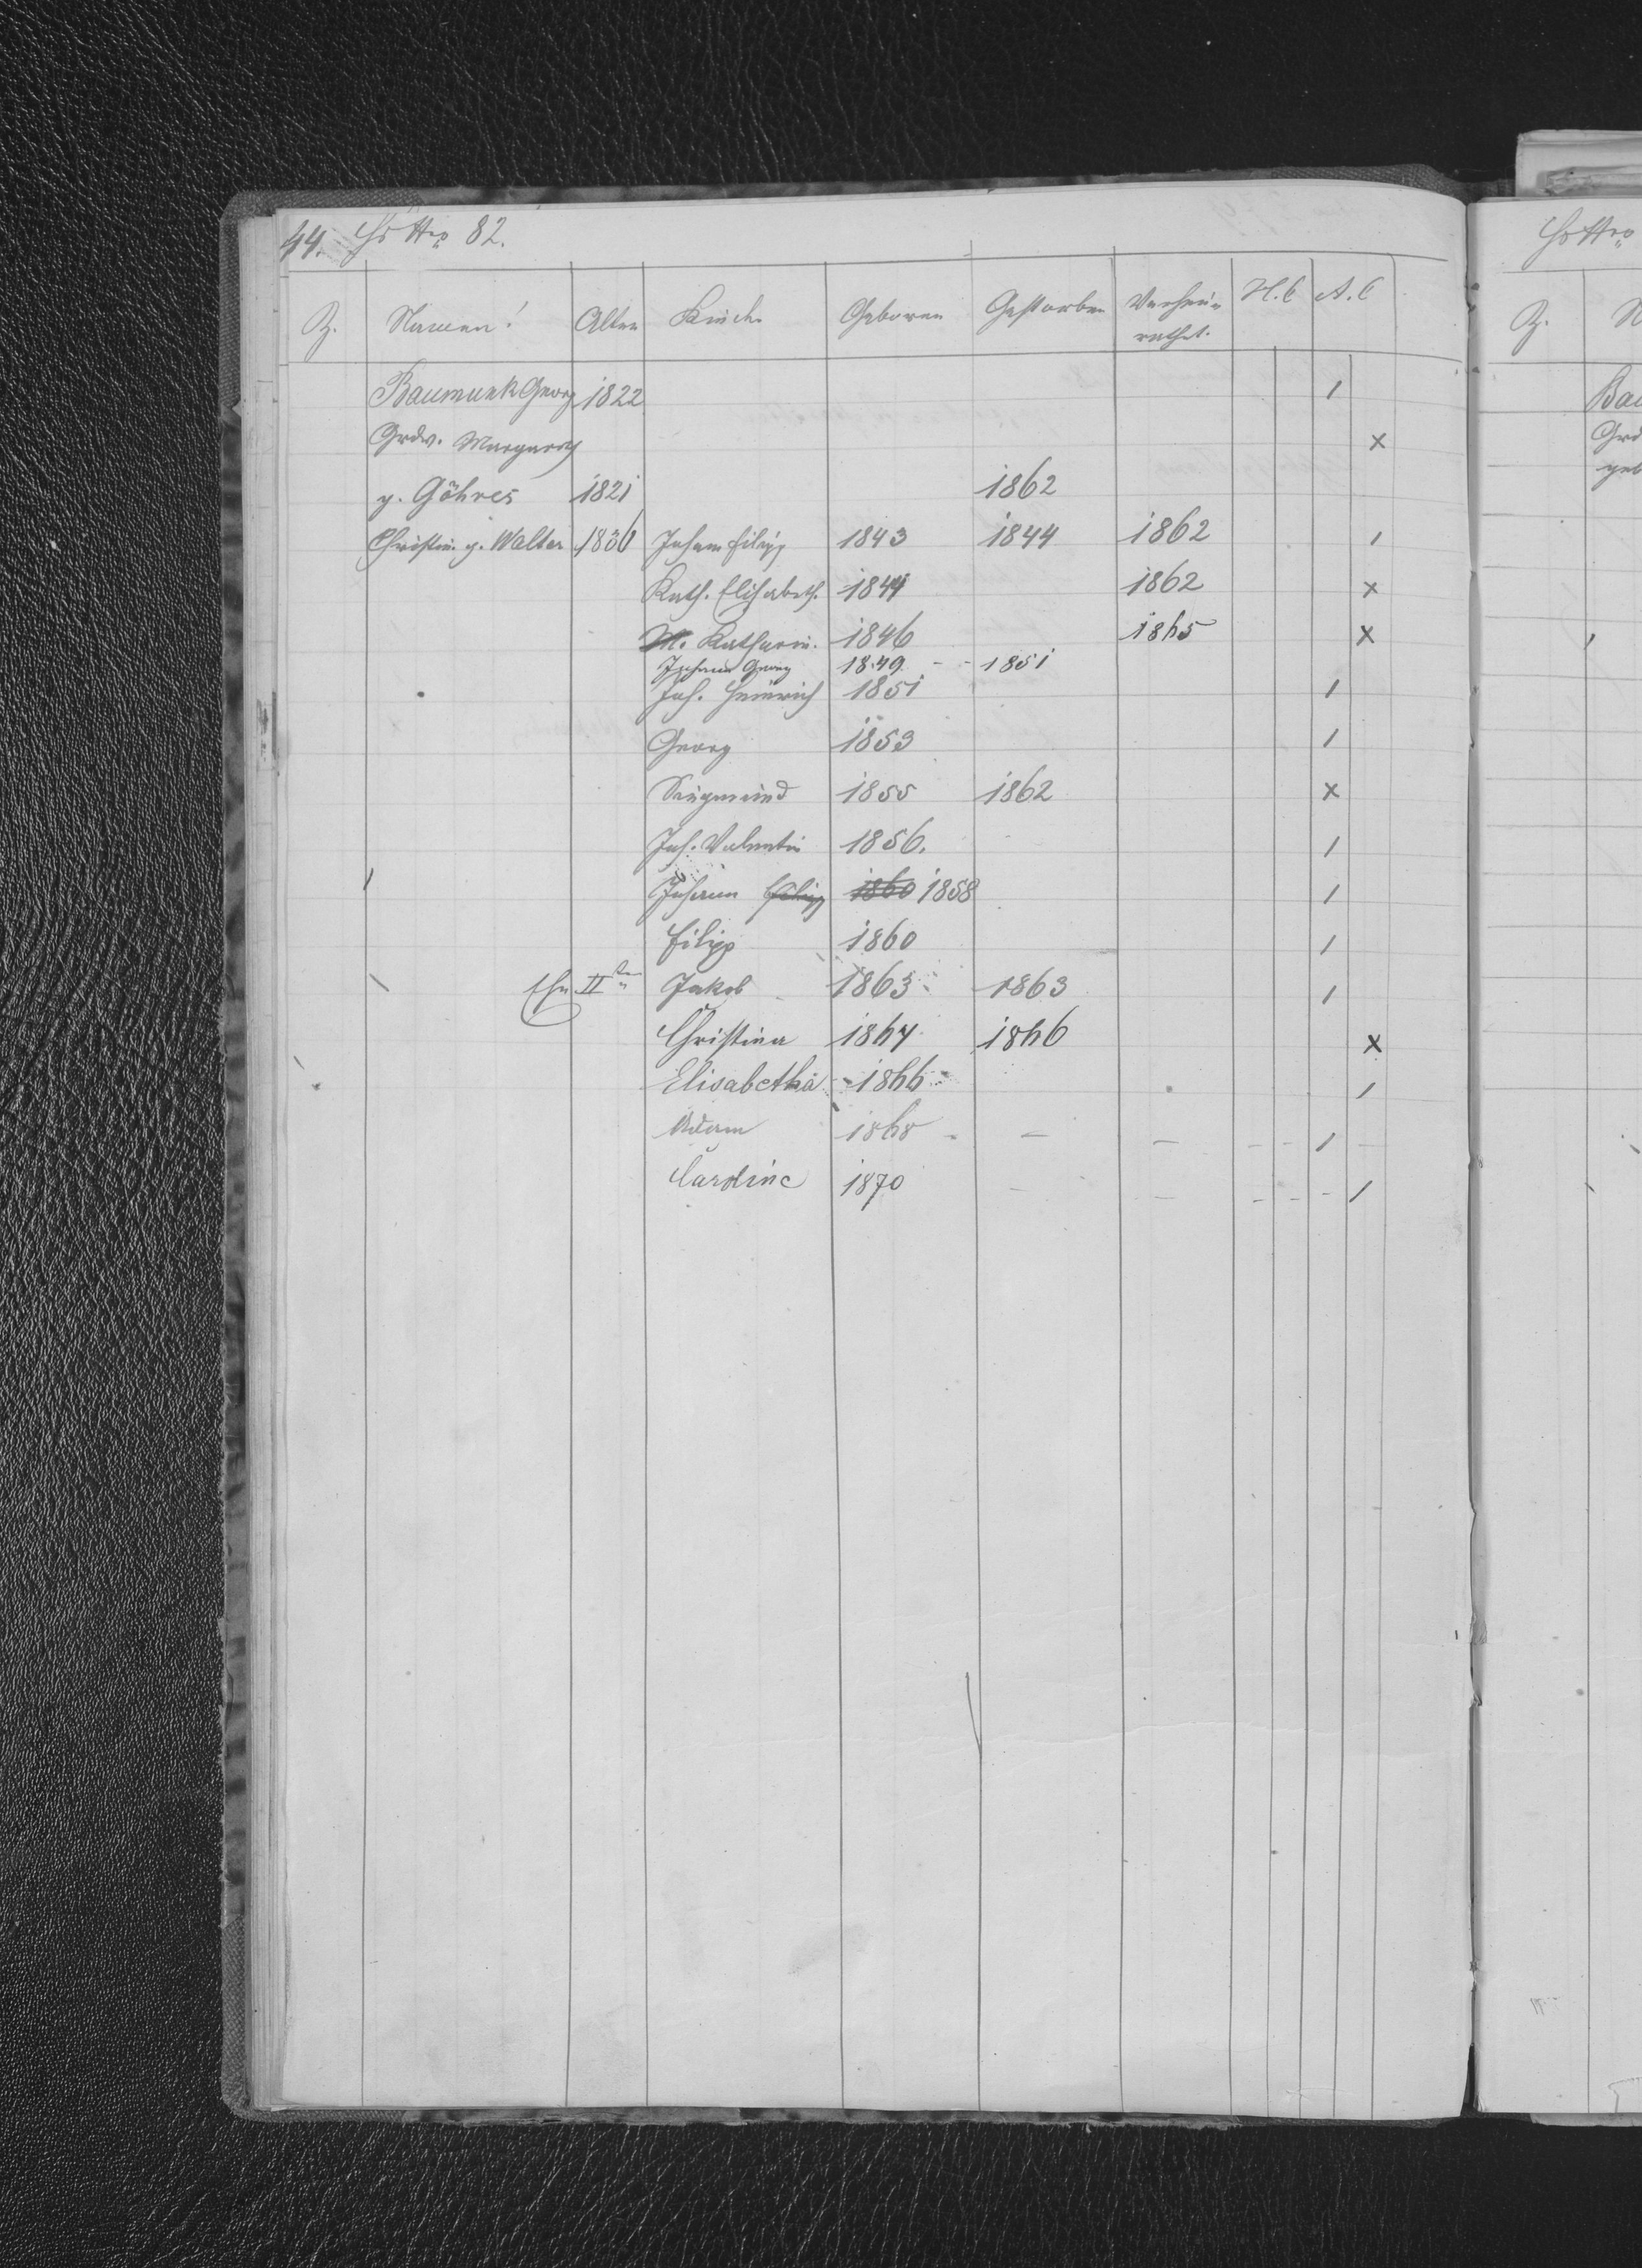 44. Hs Nro 82.
Z. Namen! Alter Kinder Geboren Gestorben Verheu-
rathet. H.C A.C
Baumunk Georg 1822 1
Grdw. Margareth x
g. Göhres 1821 1862
Christin. g. Walter 1836 Johann Filipp 1843 1844 1862 1
Kath. Elisabeth. 1844 1862 x
Katharin. 1846 1865 x
Johann Georg 1849 - - 1851
Joh. Heinrich 1851 1
Georg 1853 1
Siegmund 1855 1862 x
Joh. Valentin 1856. 1
Johann Filipp 1860 1858 1
Filipp 1860 1
Ehe IIte Jakob 1863 1863 1
Christina 1864 1866 x
Elisabetha 1866 1
Adam 1868 - - - - - 1 -
Caroline 1870 - - - - - 1
Hs Nro
Z. N
Bau
Grd
geb